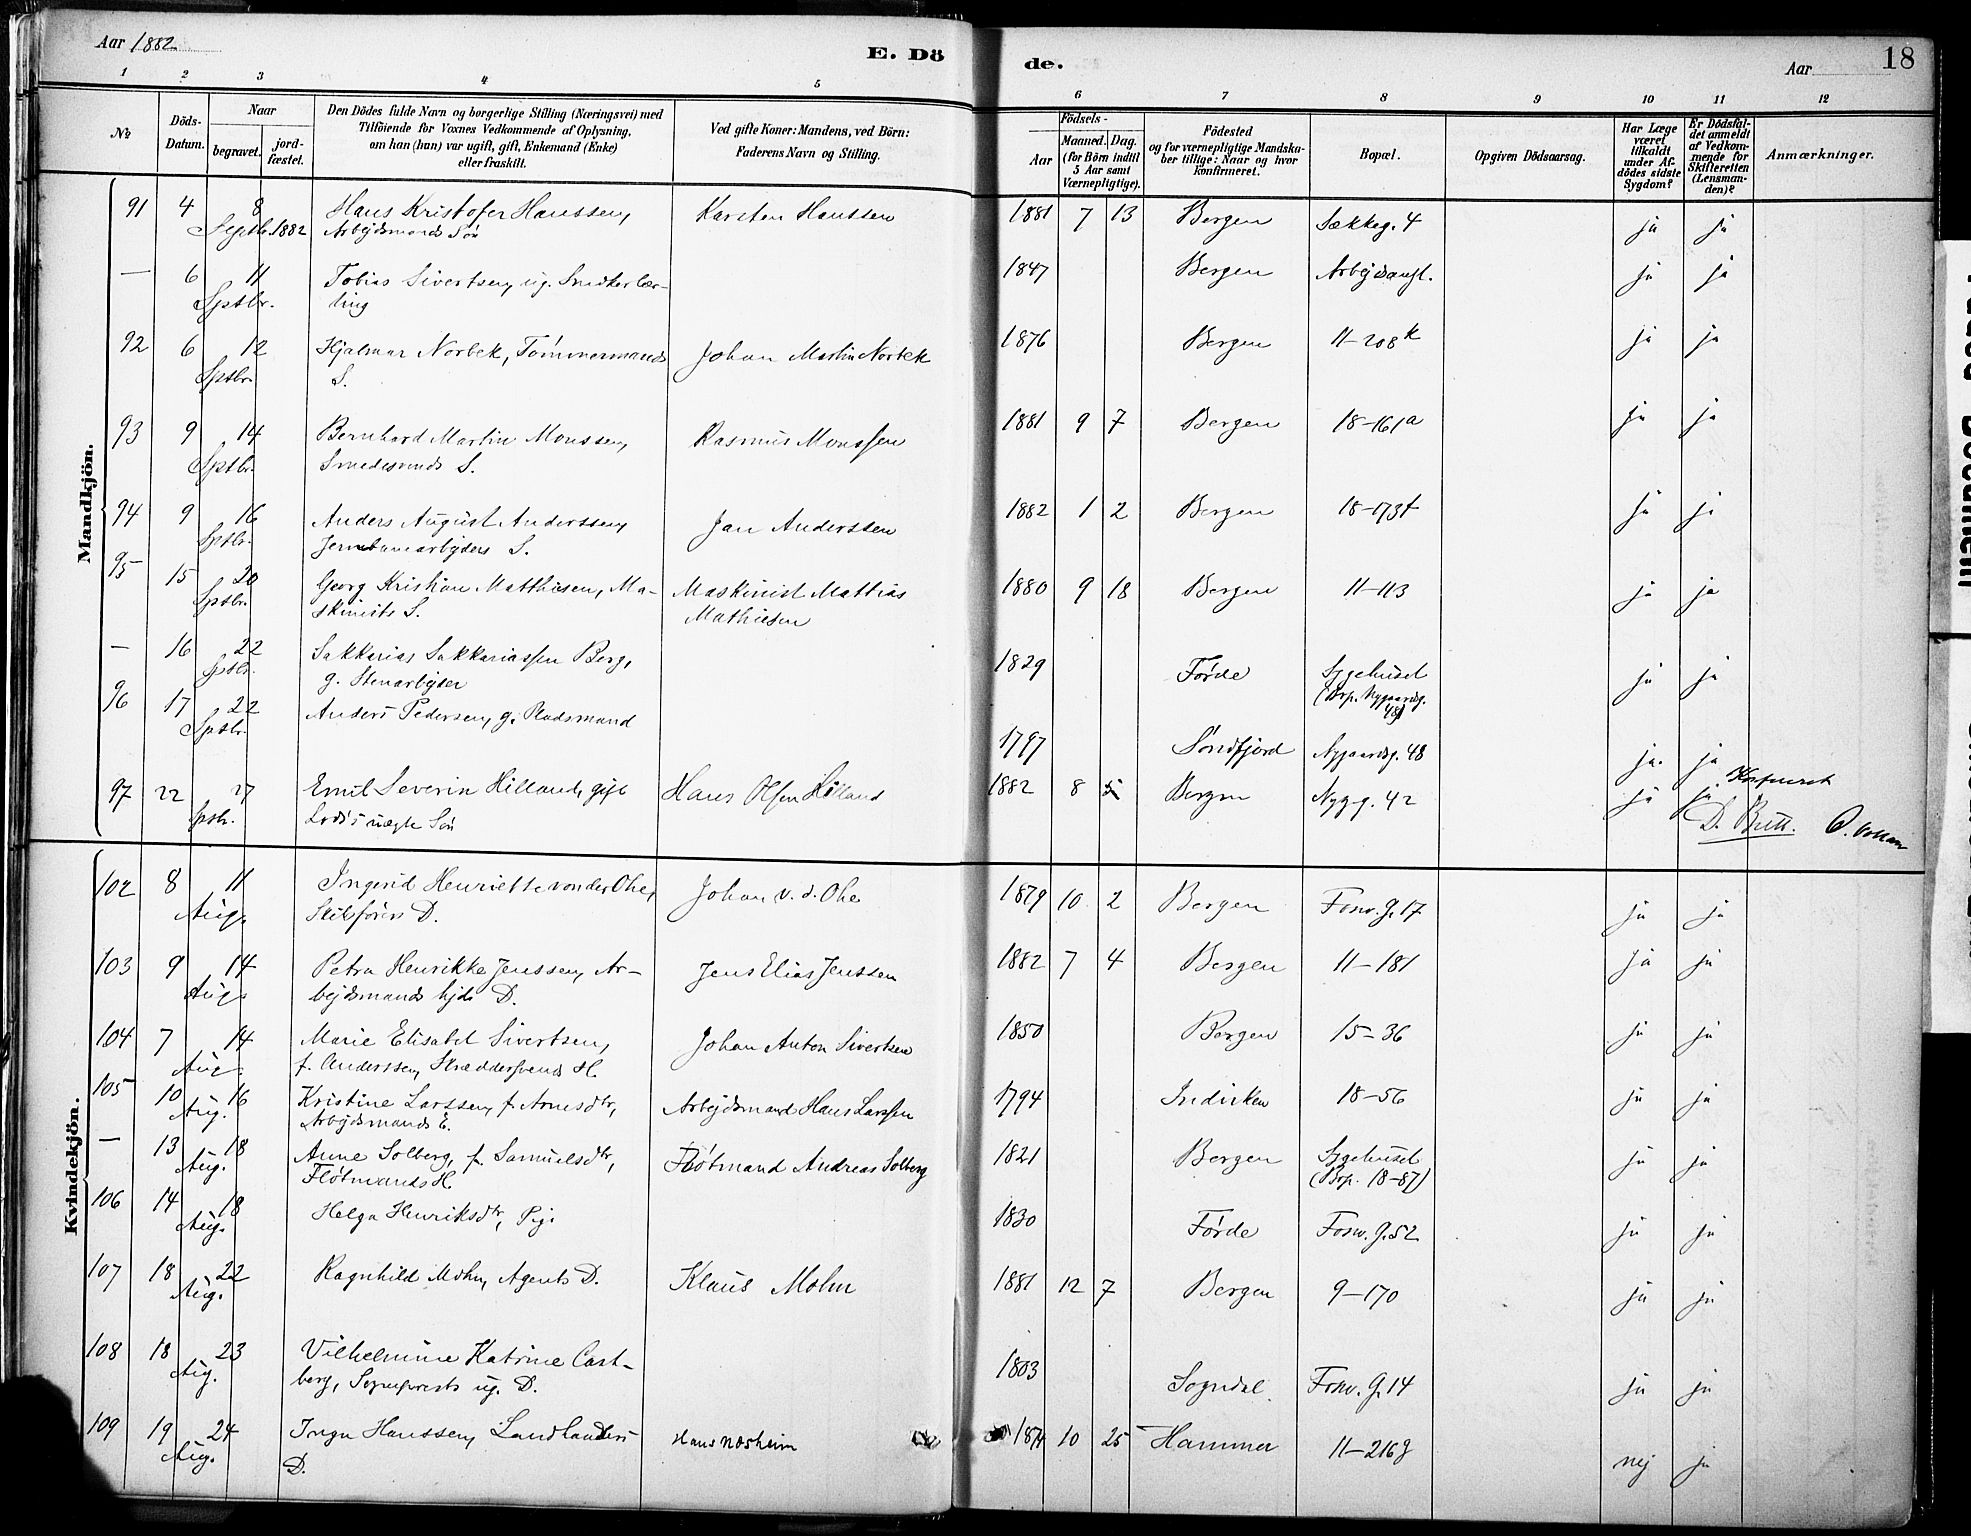 Aar 1882
E. Dö
de.
Aar
18
1 2 3 4 5 6 7 8 9 10 11 12
No
Döds-Datum.
Naar
begravet.
jordfæstet.
Den Dödes fulde Navn og borgerlige Stilling (Næringsvei) med
Tilföiende for Voxnes Vedkommende af Oplysning,
om han (hun) var ugift, gift, Enkemand (Enke)
eller fraskilt.
Ved gifte Koner: Mandens, ved Börn:
Faderens Navn og Stilling.
Födsels-
Aar
Maaned. Dag.
(for Börn indtil
5 Aar samt
Værnepligtige).
Födested
og for værnepligtige Mandska-
ber tillige: Naar og hvor
konfirmeret.
Bopæl.
Opgiven Dödsaarsag.
Har Læge
været
tilkaldt
under Af-
dödes sidste
Sygdom?
Er Dödsfal-
det anmeldt
af Vedkom-
mende for
Skifteretten
(Lensman-
den)?
Anmærkninger.
Mandkjön.
91 4 8 Hans Kristofer Hanssen, Karsten Hanssen 1881 7 13 Bergen Sækkeg. 4 ja ja
Septbr. 1882 Arbejdsmands Sön
— 6 11 Tobias Sivertsen, ug. Snedkerlær- 1847 Bergen Arbejdsanst. ja ja
Sptbr. ling
92 6 12 Hjalmar Norbek, Tømmermands Johan Martin Norbek 1876 Bergen 11-208k ja ja
Sptbr. S.
93 9 14 Bernhard Martin Monssen, Rasmus Monssen 1881 9 7 Bergen 18-161a ja ja
Sptbr. Smedesvends S.
94 9 16 Anders August Anderssen, Jan Anderssen 1882 1 2 Bergen 18-173f ja ja
Sptbr. Jernbanearbejders S.
95 15 20 Georg Kristian Matthiesen, Ma- Maskinist Mattias 1880 9 18 Bergen 11-113 ja ja
Sptbr. skinists S. Mathiesen
— 16 22 Sakkarias Sakkariassen Berg, 1829 Førde Sygehuset ja ja
Sptbr. g. Stenarbejder (Bop. Nygaardsg. 48)
96 17 22 Anders Pedersen, g. Pladsmand 1797 Søndfjord Nygaardsg. 48 ja. ja
Sptbr.
97 22 27 Emil Severin Hilland, gift Hans Olsen Hilland 1882 8 5 Bergen Nyg.g. 42 ja ja
Sptbr. Lods's uægte Søn
D. Butt.
Kvindekjön.
102 8 11 Ingerid Henriette von der Ohe, Johan v. d. Ohe 1879 10 2 Bergen Fosw. G. 17 ja ja
Aug. Skibsförers D.
103 9 14 Petra Henrikke Jenssen, Ar- Jens Elias Jenssen 1882 7 4 Bergen 11-181 ja ja
Aug. bejdsmands D.
104 7 14 Marie Elisabet Sivertsen, Johan Anton Sivertsen 1850 Bergen 15-36 ja ja
Aug. f. Anderssen, Skræddersvends H.
105 10 16 Kristine Larssen, f. Arnesdtr, Arbejdsmand Hans Larssen 1794 Indviken 18-56 ja ja
Aug. Arbejdsmands E.
— 13 18 Anne Solberg, f. Samuelsdtr, Fløtmand Andreas Solberg 1821 Bergen Sygehuset ja ja
Aug. Fløtmands H. (Bop. 18-87)
106 14 18 Helga Henriksdtr, Pige 1830 Førde Fosw. G. 52 ja ja
Aug.
107 18 22 Ragnhild Mohn, Agents D. Klaus Mohn 1881 12 7 Bergen 9-170 ja ja
Aug.
108 18 23 Vilhelmine Katrine Cast- 1803 Sogndal Fosw. G. 14 ja ja
Aug. berg, Sogneprests ug. D.
109 19 24 Inga Hanssen, Landhandlers Hans Næsheim 1874 10 25 Hammer 11-216g nej ja
Aug. D.